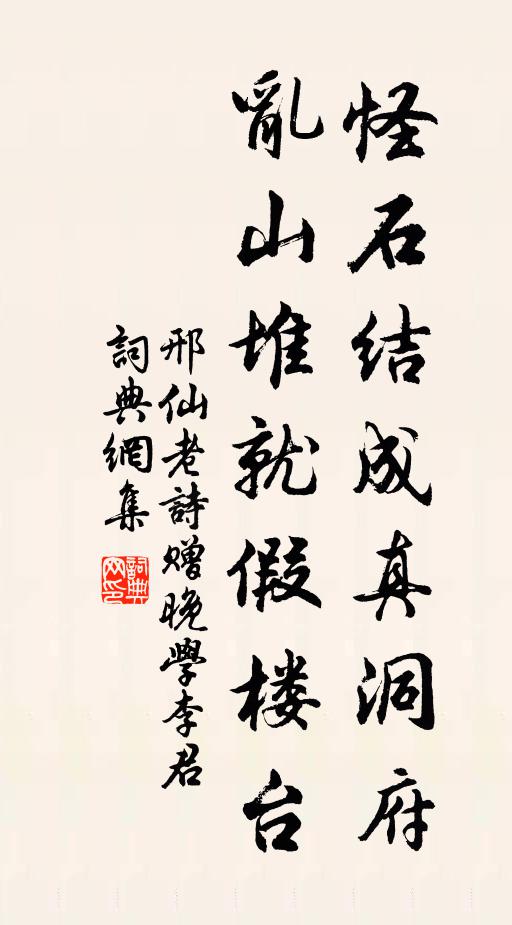 怪石结成真洞府
亂山堆就假楼台
邢仙老詩赠晚學李君
詞典網集
詞典网印